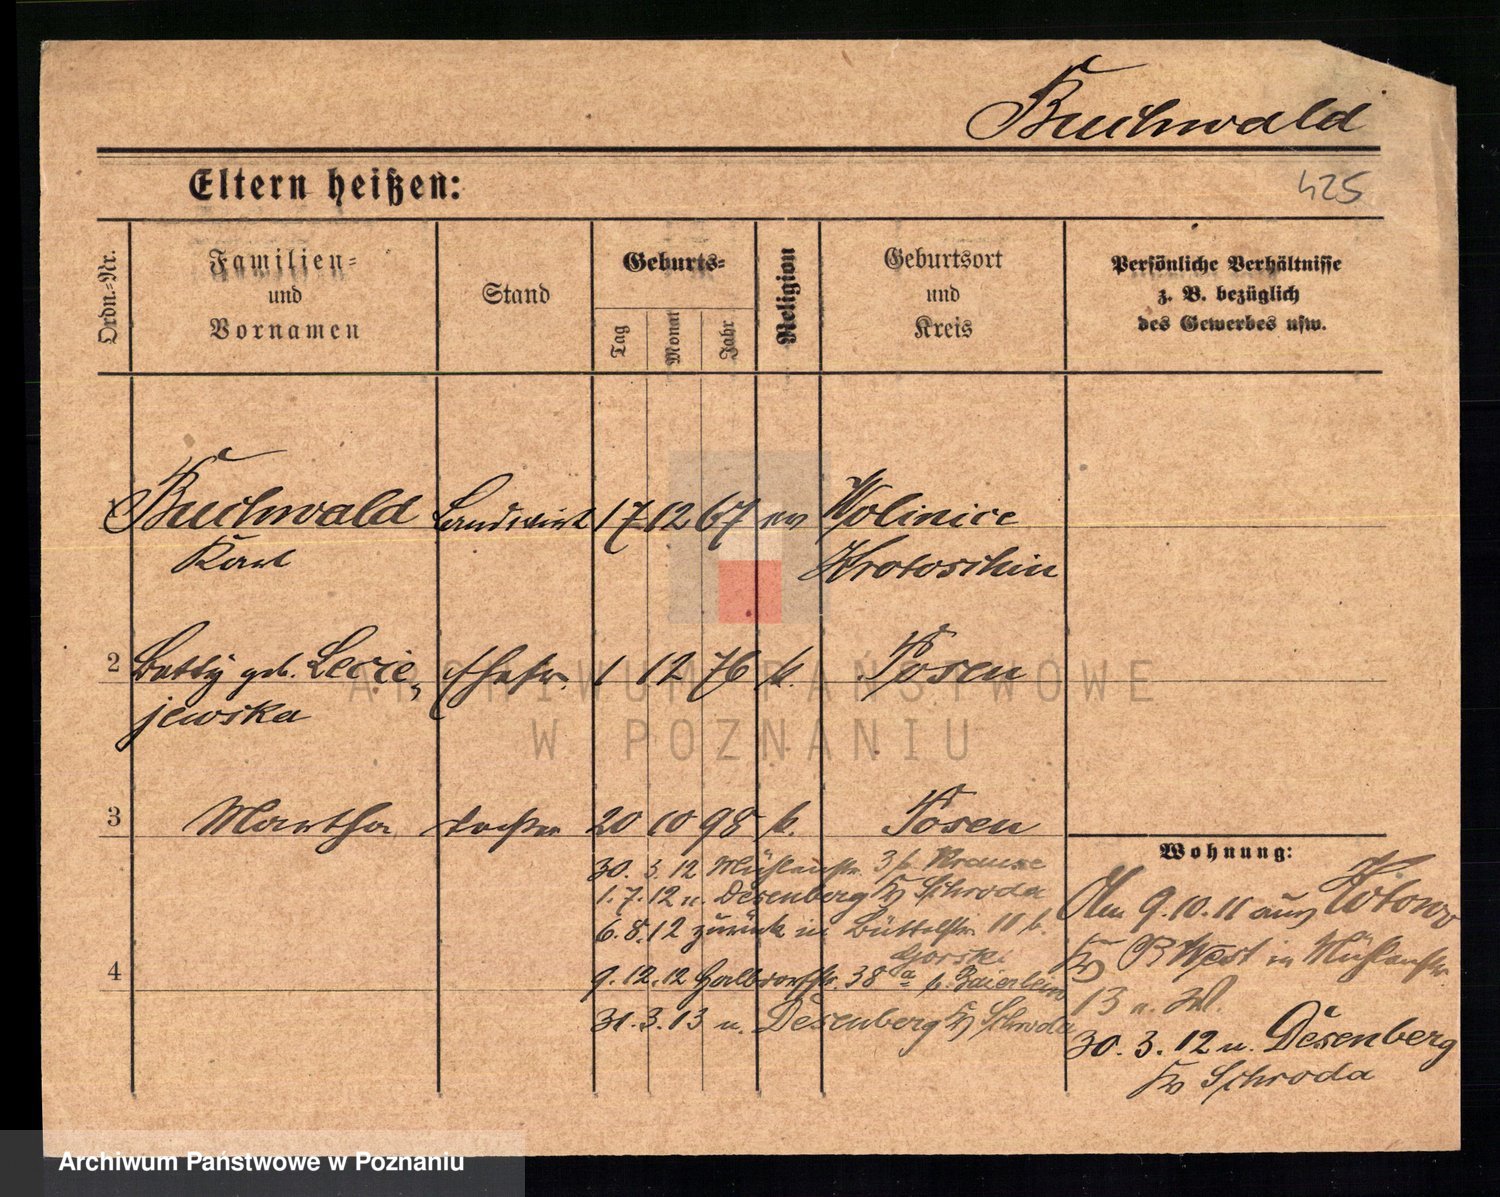 Buchwald
Eltern heißen:
425
Ordn.-Nr.
Familien-
und
Vornamen
Stand
Geburts-
Tag
Monat
Jahr
Religion
Geburtsort
und
Kreis
Persönliche Verhältnisse
z. B. bezüglich
des Gewerbes usw.
Buchwald Landwirt 17 12 67 ev Wolinice
Karl Krotoschin
2 geb. Lecie„ Ehefr. 1 12 76 k. Posen
jewska
3 Martha Tochter 20 10 98 k. Posen
Wohnung:
30. 3. 12 Mühlenstr. 3 b. Krause
1. 7. 12 n. Desenberg Kr Schroda
6. 8. 12 zurück in Büttelstr. 11 b.
Gorski
4
9. 12. 12 Halbdorfstr. 38a b. Baierlein
31. 3. 13 n. Desenberg Kr Schroda
Am 9. 10. 11 aus Kotowo
Kr P West in Mühlenstr.
13 n. W.
30. 3. 12 n. Desenberg
Kr Schroda
ARCHIWUM PAŃSTWOWE
W POZNANIU
Archiwum Państwowe w Poznaniu